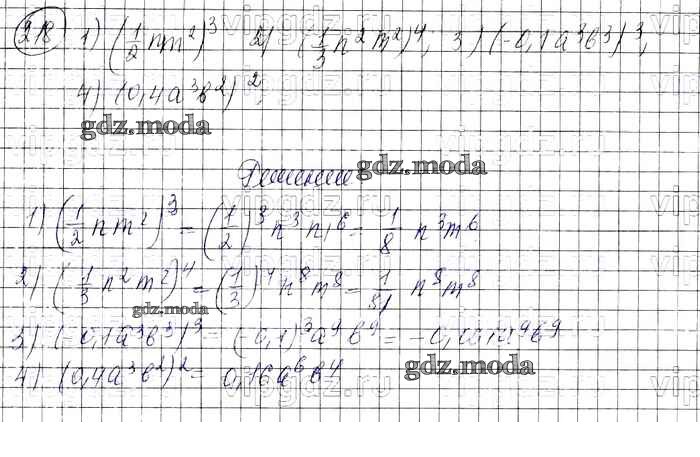 218 1) (1/2 nm²)³ 2) (1/3 n²m²)⁴; 3) (-0,1a³b³)³;
4) (0,4a³b²)²;
gdz.moda
Решение
gdz.moda
1) (1/2 n m²)³ = (1/2)³ n³ m⁶ = 1/8 n³m⁶
2) (1/3 n²m²)⁴ = (1/3)⁴ n⁸m⁸ = 1/81 n⁸m⁸
gdz.moda
3) (-0,1a³b³)³ = (-0,1)³a⁹b⁹ = -0,001a⁹b⁹
4) (0,4a³b²)² = 0,16a⁶b⁴
gdz.moda
vipgdz.ru